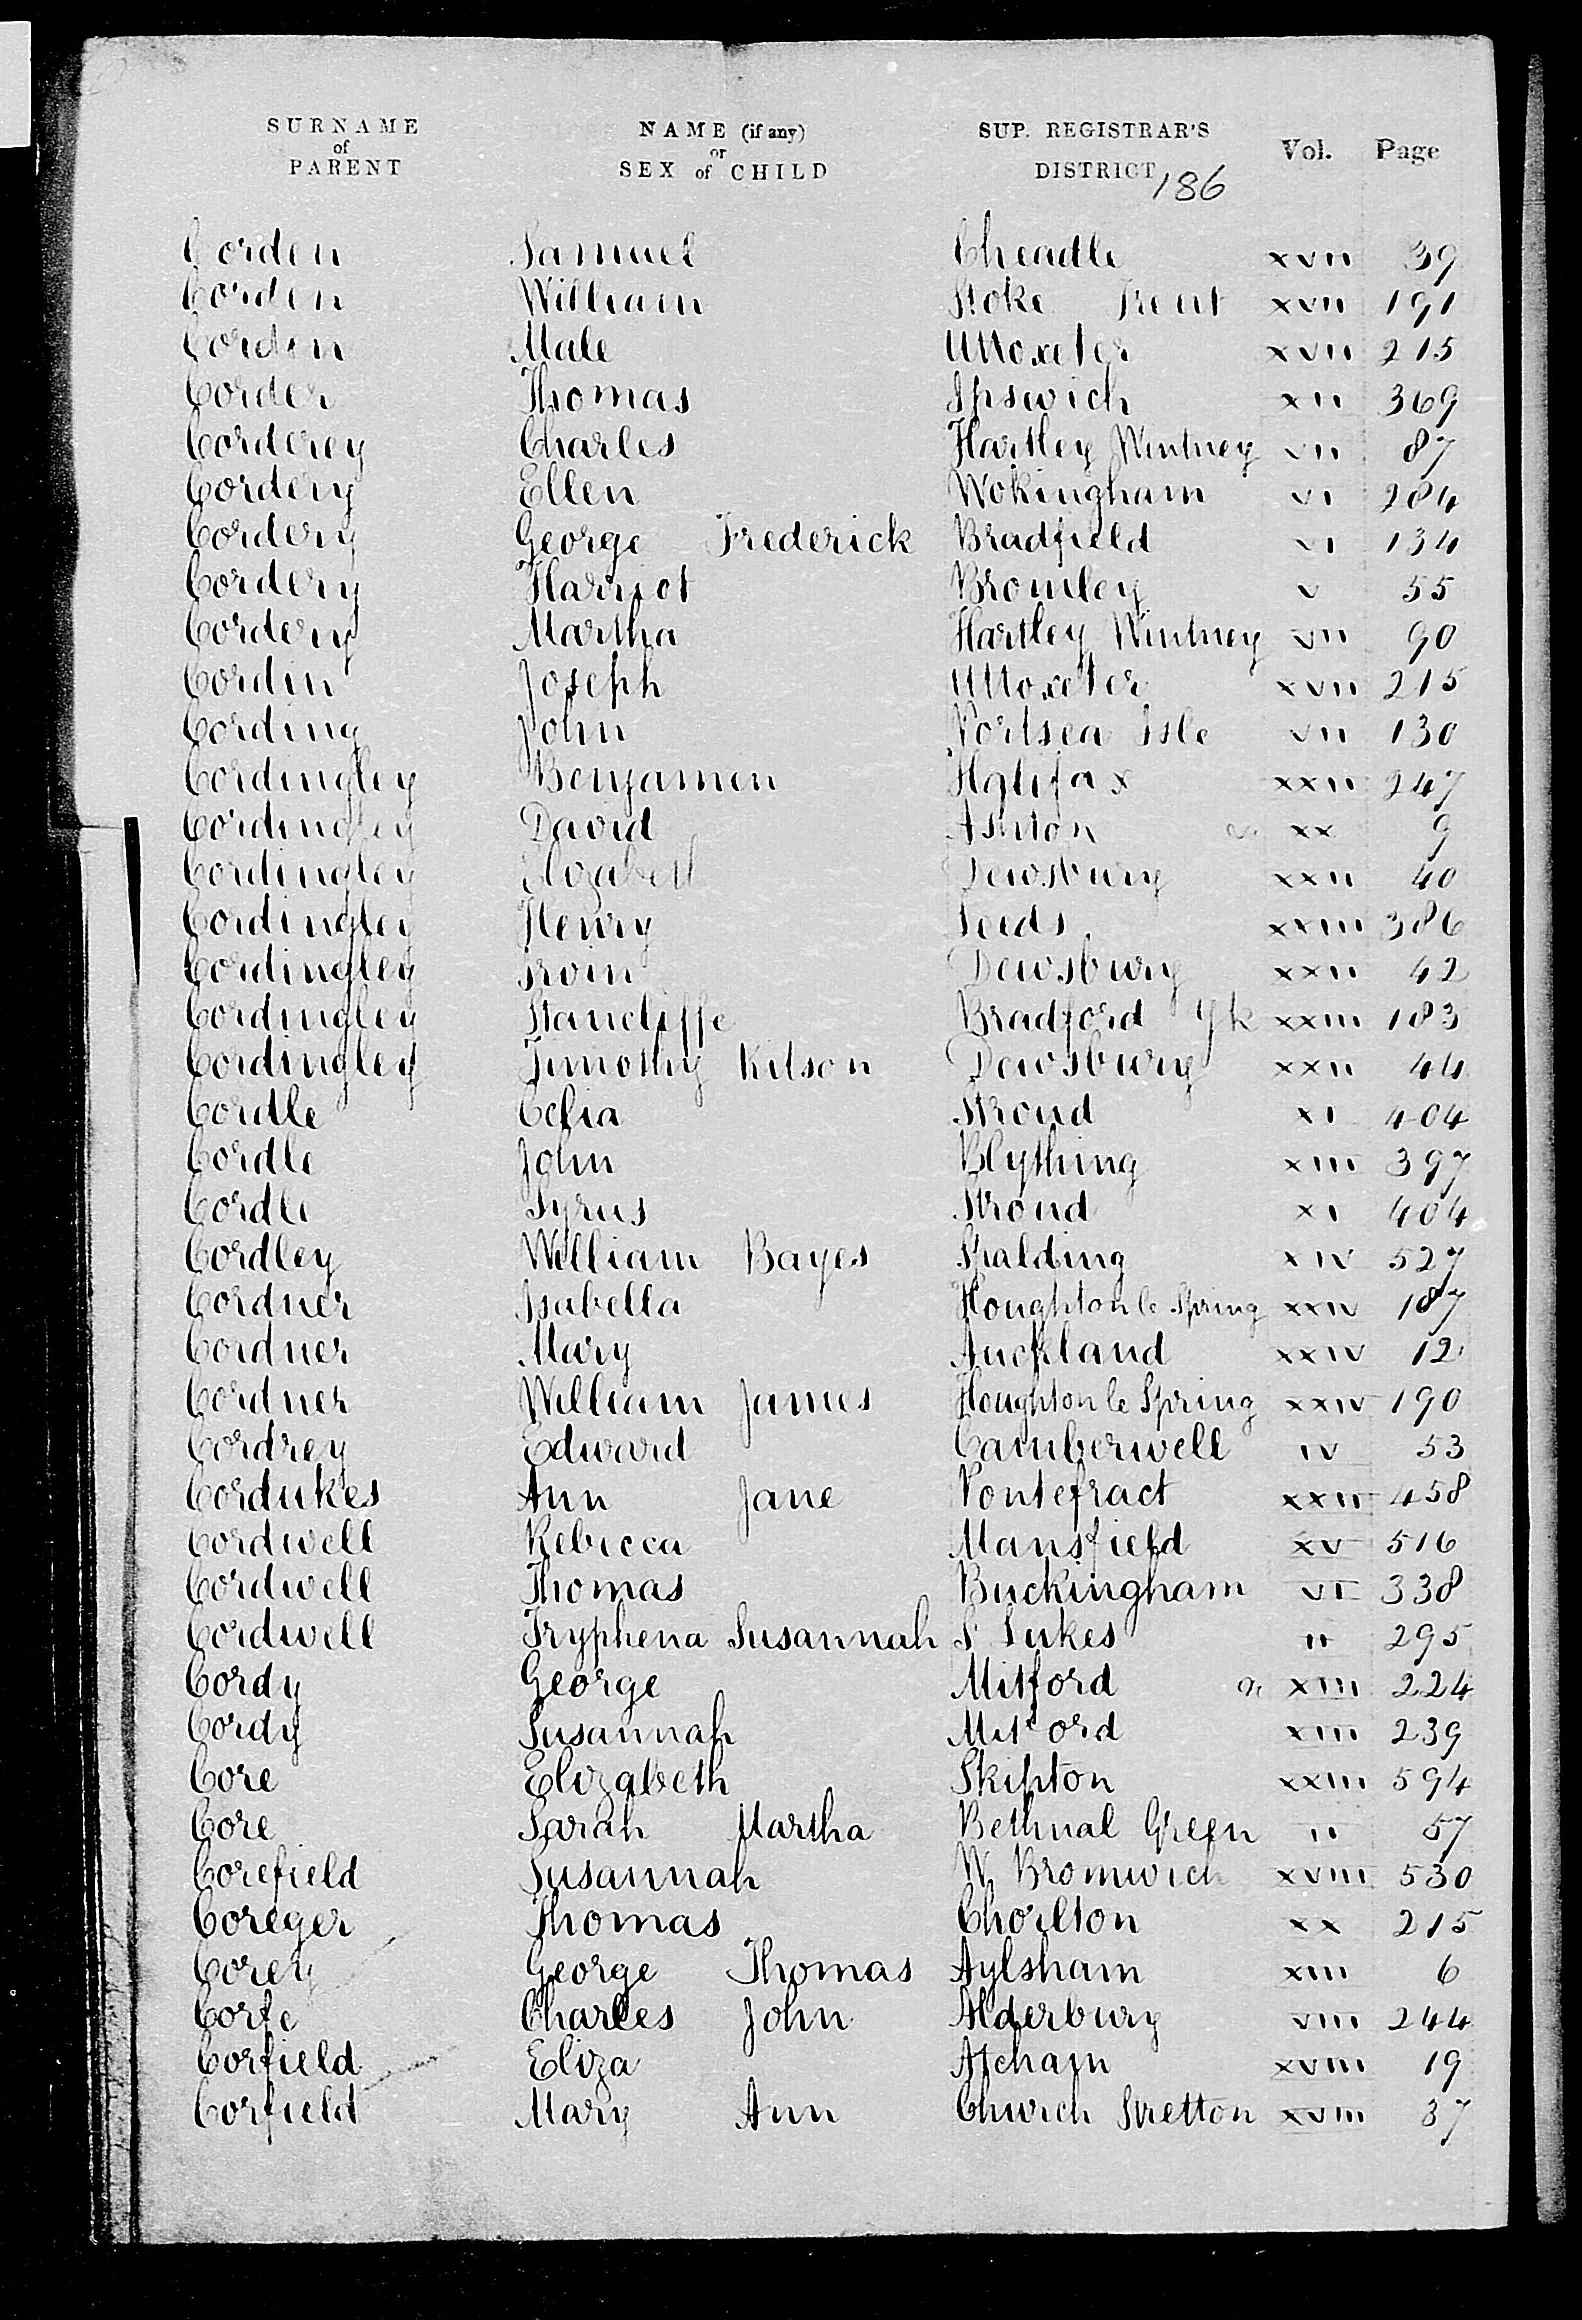 SURNAME of PARENT NAME (if any) or SEX of CHILD SUP. REGISTRAR'S DISTRICT Vol. Page
186
Corden Samuel Cheadle xvii 39
Corden William Stoke Trent xvii 191
Corden Male Uttoxeter xvii 215
Corder Thomas Ipswich xii 369
Corderey Charles Hartley Wintney vii 87
Cordery Ellen Wokingham vi 284
Cordery George Frederick Bradfield vi 134
Cordery Harriot Bromley v 55
Cordery Martha Hartley Wintney vii 90
Cordin Joseph Uttoxeter xvii 215
Cording John Portsea Isle vii 130
Cordingley Benjamin Halifax xxii 247
Cordingley David Ashton xx 9
Cordingley Elizabeth Dewsbury xxii 40
Cordingley Henry Leeds xxiii 386
Cordingley Irvin Dewsbury xxii 42
Cordingley Stancliffe Bradford Yk xxiii 183
Cordingley Timothy Kitson Dewsbury xxii 44
Cordle Celia Stroud xi 404
Cordle John Blything xiii 397
Cordle Syrus Stroud xi 404
Cordley William Bayes Spalding xiv 527
Cordner Isabella Houghton le Spring xxiv 187
Cordner Mary Auckland xxiv 12
Cordner William James Houghton le Spring xxiv 190
Cordrey Edward Camberwell iv 53
Cordukes Ann Jane Pontefract xxii 458
Cordwell Rebecca Mansfield xv 516
Cordwell Thomas Buckingham vi 338
Cordwell Tryphena Susannah S Lukes ii 295
Cordy George Mitford xiii 224
Cordy Susannah Mitford xiii 239
Core Elizabeth Skipton xxiii 594
Core Sarah Martha Bethnal Green ii 57
Corefield Susannah W Bromwich xviii 530
Coreger Thomas Chorlton xx 215
Corey George Thomas Aylsham xiii 6
Corfe Charles John Alderbury viii 244
Corfield Eliza Atcham xviii 19
Corfield Mary Ann Church Stretton xviii 37